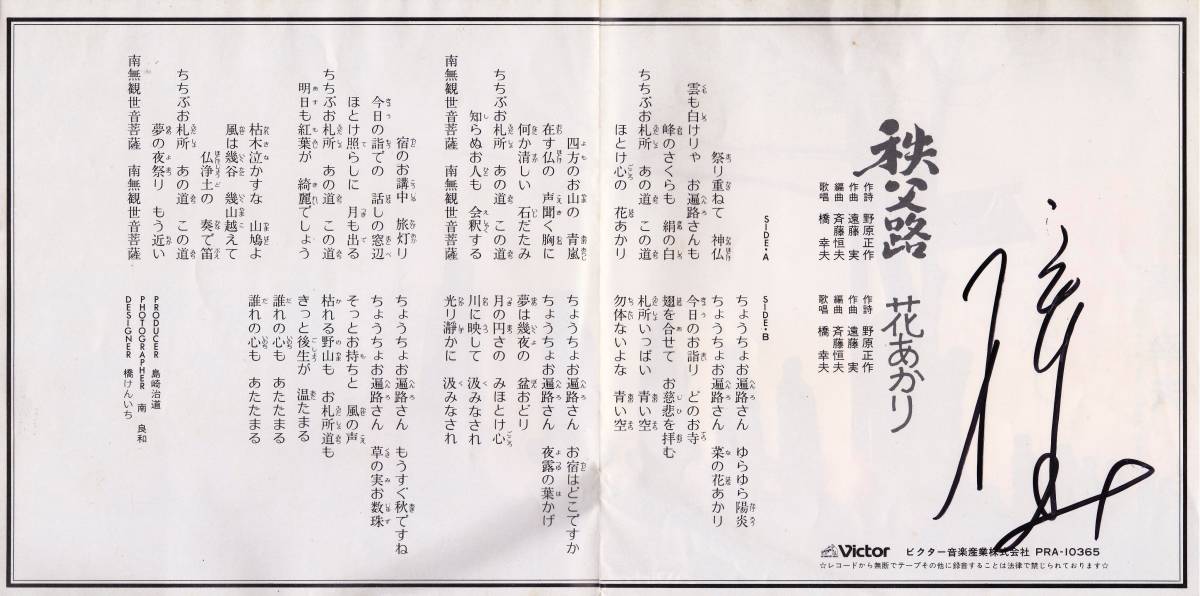 秩父路
作詩 野原正作
作曲 遠藤 実
編曲 斉藤恒夫
歌唱 橋 幸夫
花あかり
作詩 野原正作
作曲 遠藤 実
編曲 斉藤恒夫
歌唱 橋 幸夫
SIDE・A
祭り重ねて 神仏
雲も白けりゃ お遍路さんも
峰のさくらも 絹の白
ちちぶお札所 あの道 この道
ほとけ心の 花あかり
四方のお山の 青嵐
在す仏の 声聞く胸に
何か清しい 石だたみ
ちちぶお札所 あの道 この道
知らぬお人も 会釈する
南無観世音菩薩 南無観世音菩薩
宿のお講中 旅灯り
今日の詣での 話しの窓辺
ほとけ照らしに 月も出る
ちちぶお札所 あの道 この道
明日も紅葉が 綺麗でしょう
枯木泣かすな 山鳩よ
風は幾谷 幾山越えて
仏浄土の 奏で笛
ちちぶお札所 あの道 この道
夢の夜祭り もう近い
南無観世音菩薩 南無観世音菩薩
SIDE・B
ちょうちょお遍路さん ゆらゆら陽炎
ちょうちょお遍路さん 菜の花あかり
今日のお詣り どのお寺
翅を合せて お慈悲を拝む
札所いっぱい 青い空
勿体ないよな 青い空
ちょうちょお遍路さん お宿はどこですか
ちょうちょお遍路さん 夜露の葉かげ
夢は幾夜の 盆おどり
月の円さの みほとけ心
川に映して 汲みなされ
光り瀞かに 汲みなされ
ちょうちょお遍路さん もうすぐ秋ですね
ちょうちょお遍路さん 草の実お数珠
そっとお持ちと 風の声
枯れる野山も お札所道も
きっと後生が 温たまる
誰れの心も あたたまる
誰れの心も あたたまる
PRODUCER 島崎治道
PHOTOGRAPHER 南 良和
DESIGNER 橋けんいち
Victor ビクター音楽産業株式会社 PRA-10365
☆レコードから無断でテープその他に録音することは法律で禁じられております☆